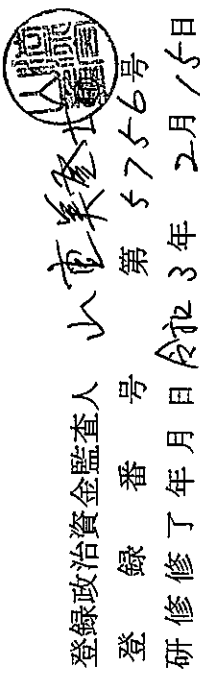 登録政治資金監査人
登録番号 第5756号
研修修了年月日 令和3年2月15日